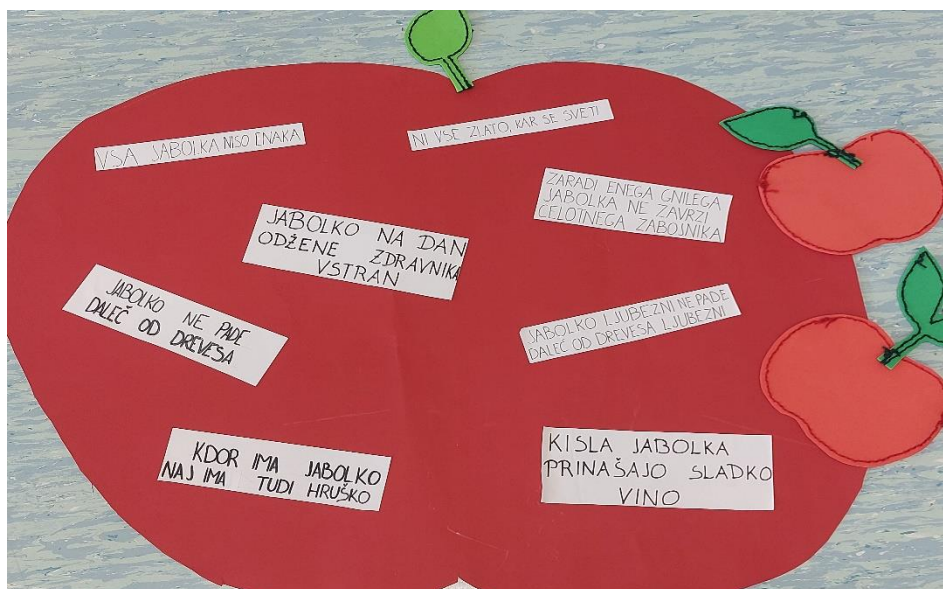 VSA JABOLKA NISO ENAKA
NI VSE ZLATO, KAR SE SVETI
ZARADI ENEGA GNILEGA
JABOLKA NE ZAVRZI
CELOTNEGA ZABOJNIKA
JABOLKO NA DAN
ODŽENE ZDRAVNIKA
VSTRAN
JABOLKO NE PADE
DALEČ OD DREVESA
JABOLKO LJUBEZNI NE PADE
DALEČ OD DREVESA LJUBEZNI
KDOR IMA JABOLKO
NAJ IMA TUDI HRUŠKO
KISLA JABOLKA
PRINAŠAJO SLADKO
VINO